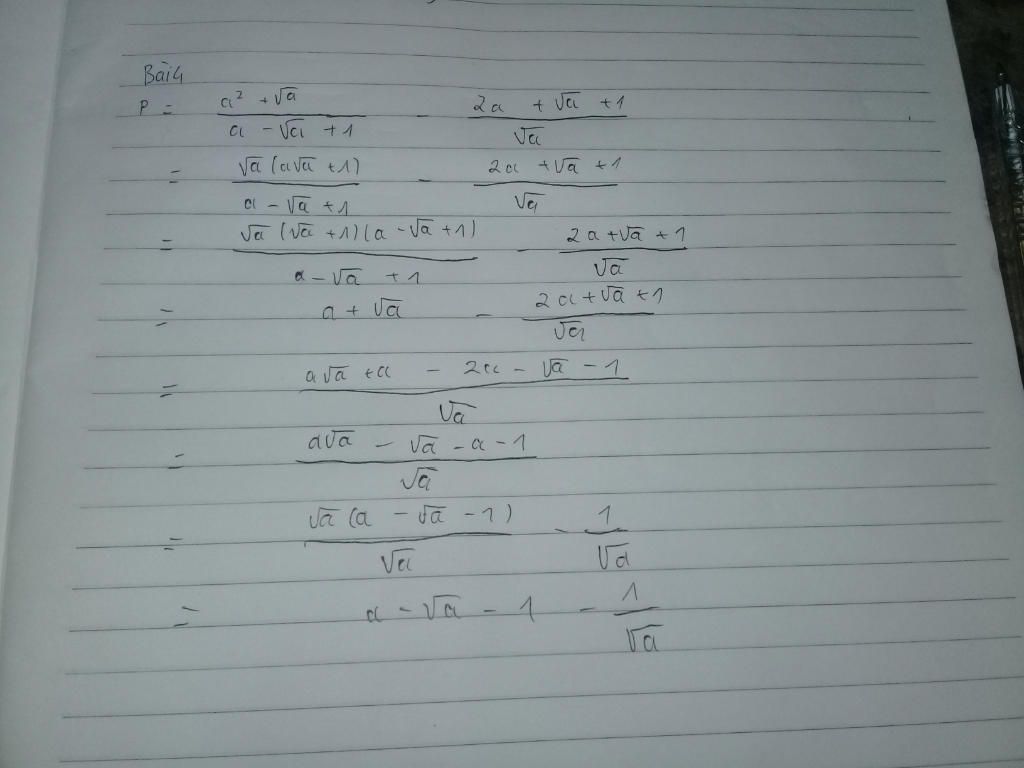 Bài 4
P = (a² + √a)/(a - √a + 1) - (2a + √a + 1)/√a
= (√a (a√a + 1))/(a - √a + 1) - (2a + √a + 1)/√a
= (√a (√a + 1)(a - √a + 1))/(a - √a + 1) - (2a + √a + 1)/√a
= a + √a - (2a + √a + 1)/√a
= (a√a + a - 2a - √a - 1)/√a
= (a√a - √a - a - 1)/√a
= (√a (a - √a - 1))/√a - 1/√a
= a - √a - 1 - 1/√a